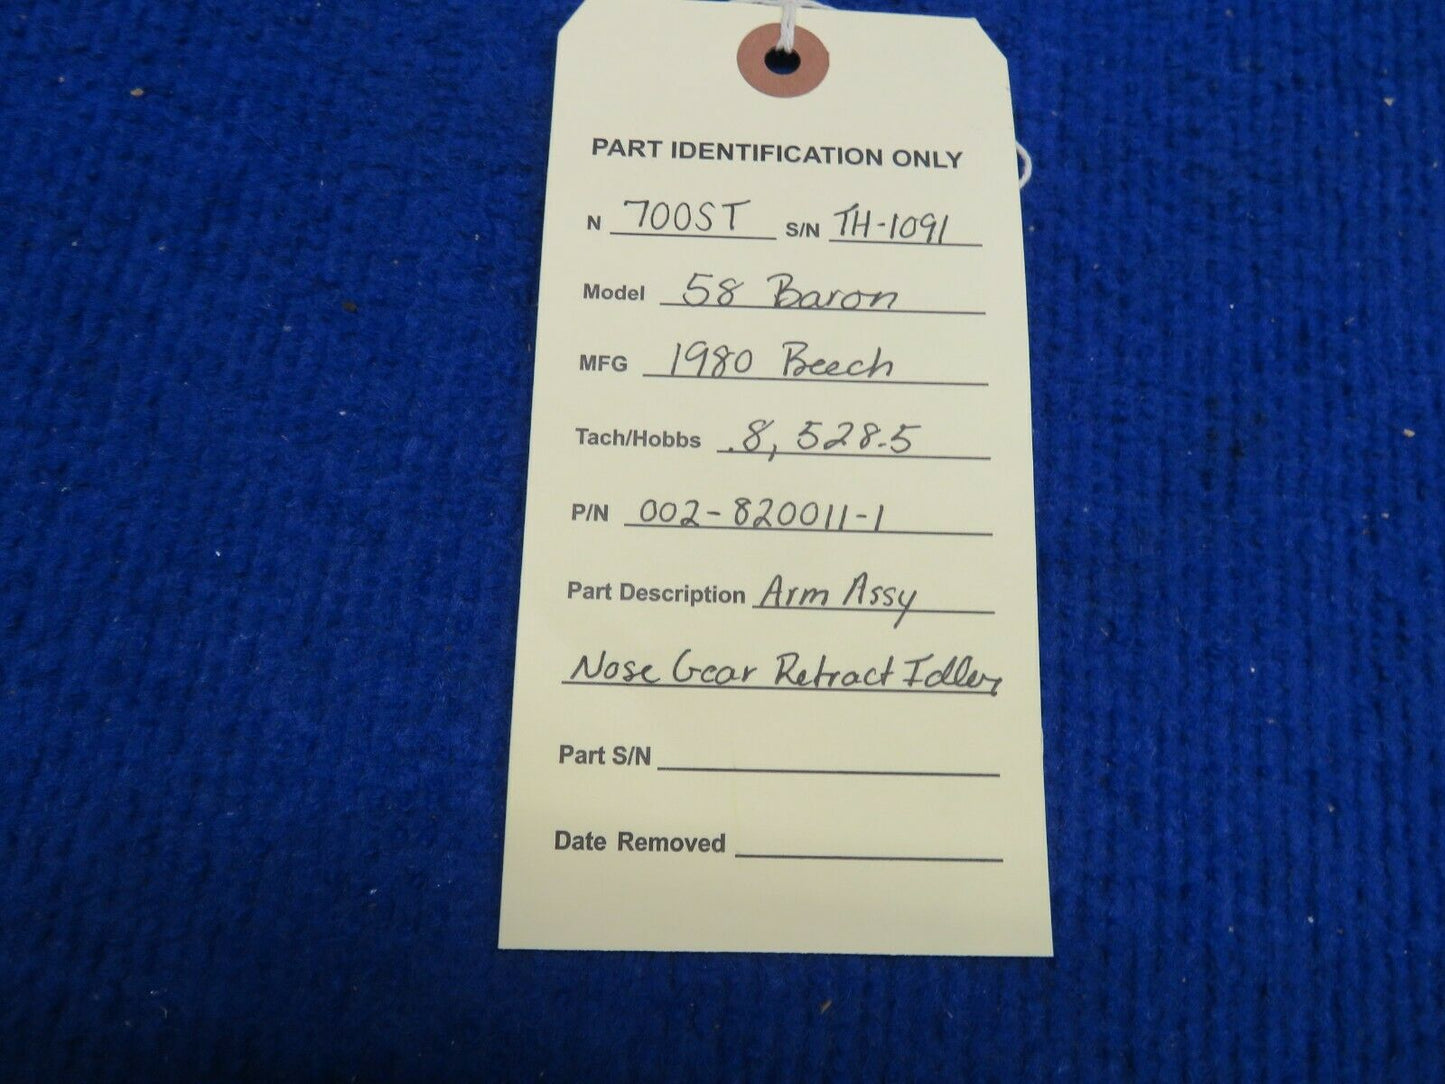 PART IDENTIFICATION ONLY
N 700ST S/N TH-1091
Model 58 Baron
MFG 1980 Beech
Tach/Hobbs 8,528.5
P/N 002-820011-1
Part Description Arm Assy
Nose Gear Retract Idler
Part S/N
Date Removed